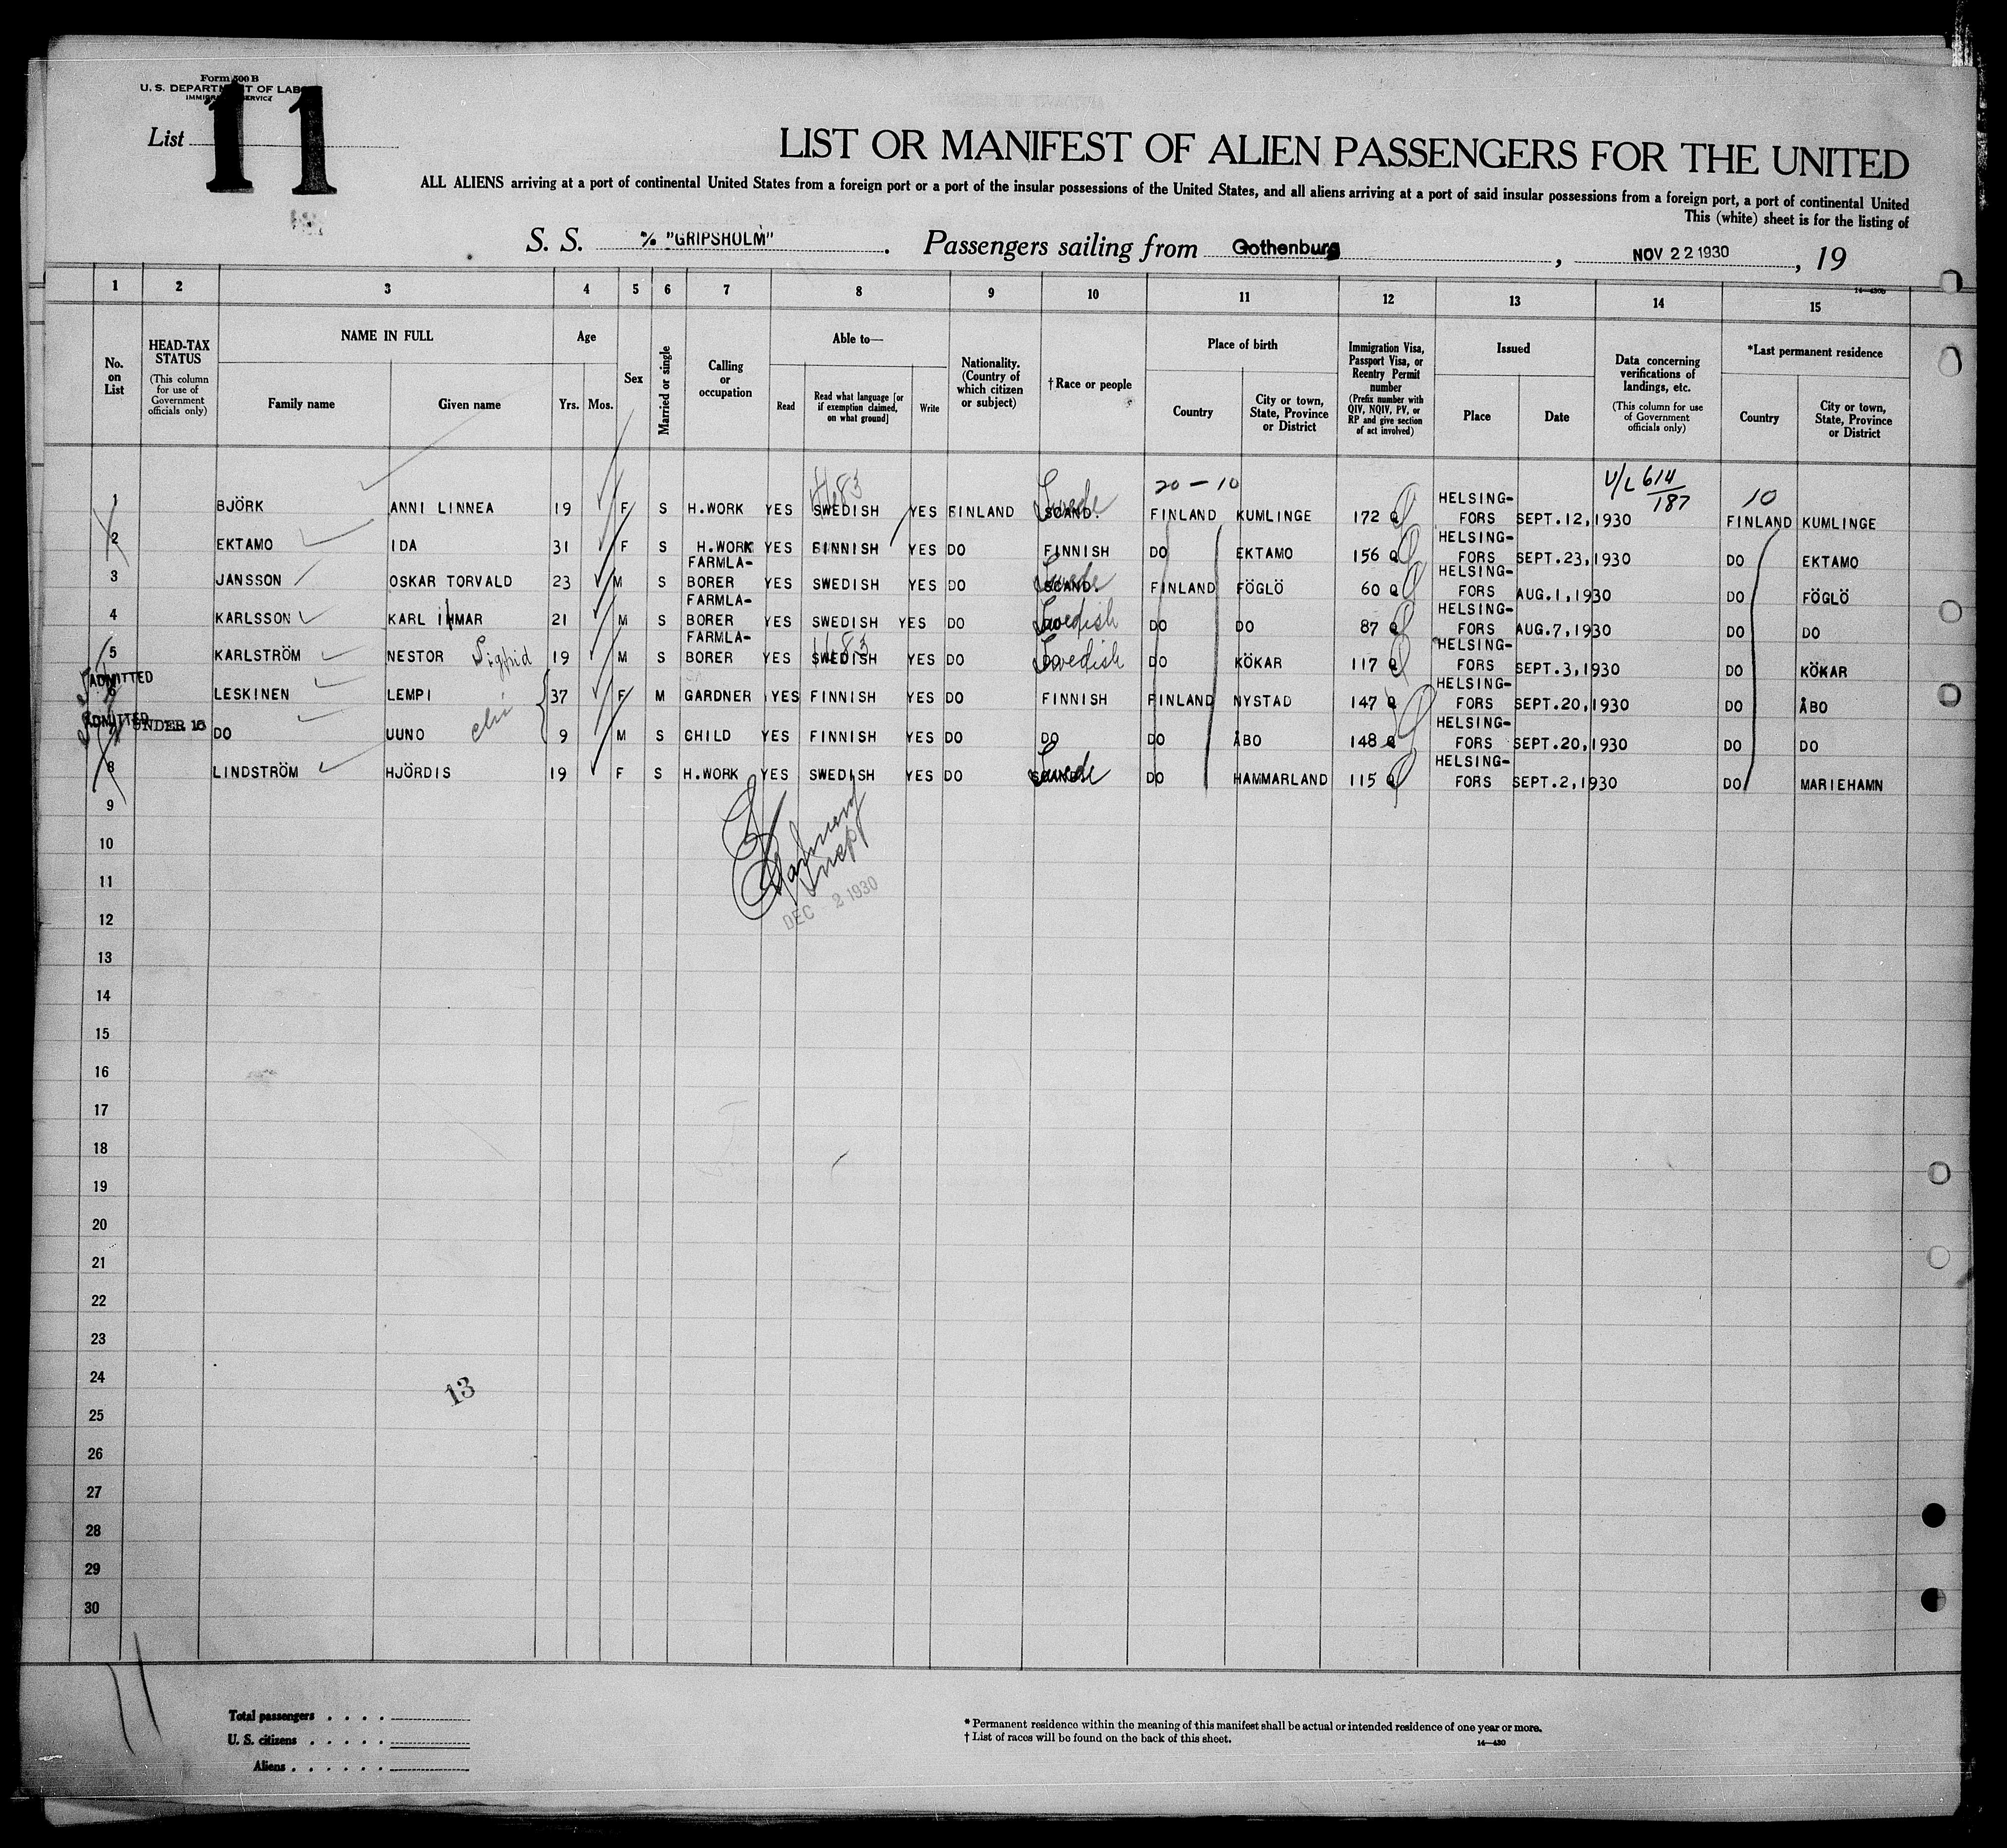 Form 500 B
U. S. DEPARTMENT OF LABOR
IMMIGRATION SERVICE
List 11
LIST OR MANIFEST OF ALIEN PASSENGERS FOR THE UNITED
ALL ALIENS arriving at a port of continental United States from a foreign port or a port of the insular possessions of the United States, and all aliens arriving at a port of said insular possessions from a foreign port, a port of continental United
This (white) sheet is for the listing of
S. S. % "GRIPSHOLM". Passengers sailing from Gothenburg, NOV 22 1930, 19
14—430b
1 2 3 4 5 6 7 8 9 10 11 12 13 14 15
No. on List
HEAD-TAX STATUS
(This column for use of Government officials only)
NAME IN FULL
Family name
Given name
Age
Yrs. Mos.
Sex
Married or single
Calling or occupation
Able to—
Read
Read what language [or if exemption claimed, on what ground]
Write
Nationality. (Country of which citizen or subject)
†Race or people
Place of birth
Country
City or town, State, Province or District
Immigration Visa, Passport Visa, or Reentry Permit number
(Prefix number with QIV, NQIV, PV, or RP and give section of act involved)
Issued
Place
Date
Data concerning verifications of landings, etc.
(This column for use of Government officials only)
*Last permanent residence
Country
City or town, State, Province or District
20 — 10
V/L 614
187
10
1 BJÖRK ANNI LINNEA 19 F S H.WORK YES SWEDISH YES FINLAND SCAND. Swede FINLAND KUMLINGE 172 Q HELSING-FORS SEPT.12,1930 FINLAND KUMLINGE
2 EKTAMO IDA 31 F S H.WORK YES FINNISH YES DO FINNISH DO EKTAMO 156 Q HELSING-FORS SEPT.23,1930 DO EKTAMO
3 JANSSON OSKAR TORVALD 23 M S FARMLA-BORER YES SWEDISH YES DO SCAND. Swede FINLAND FÖGLÖ 60 Q HELSING-FORS AUG.1,1930 DO FÖGLÖ
4 KARLSSON KARL IHMAR 21 M S FARMLA-BORER YES SWEDISH YES DO Swedish DO DO 87 Q HELSING-FORS AUG.7,1930 DO DO
5 KARLSTRÖM NESTOR Sigfrid 19 M S FARMLA-BORER YES SWEDISH YES DO Swedish DO KÖKAR 117 Q HELSING-FORS SEPT.3,1930 DO KÖKAR
ADMITTED
6 LESKINEN LEMPI 37 F M GARDNER YES FINNISH YES DO FINNISH FINLAND NYSTAD 147 Q HELSING-FORS SEPT.20,1930 DO ÅBO
ADMITTED UNDER 16
7 DO UUNO 9 M S CHILD YES FINNISH YES DO DO DO ÅBO 148 Q HELSING-FORS SEPT.20,1930 DO DO
8 LINDSTRÖM HJÖRDIS 19 F S H.WORK YES SWEDISH YES DO Swede DO HAMMARLAND 115 Q HELSING-FORS SEPT.2,1930 DO MARIEHAMN
9
10
11
DEC 2 1930
12
13
14
15
16
17
18
19
20
21
22
23
24
13
25
26
27
28
29
30
Total passengers . . . .
U. S. citizens . . . . .
Aliens . . . . . .
* Permanent residence within the meaning of this manifest shall be actual or intended residence of one year or more.
† List of races will be found on the back of this sheet.
14—430